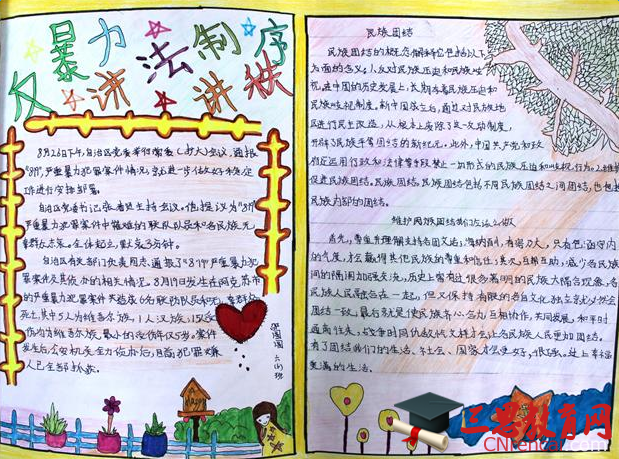 反暴力 讲法制 讲秩序
8月26日下午,自治区党委举行常委(扩大)会议,通报
"819"严重暴力犯罪案件情况,就进一步做好当前稳定
工作进行安排部署。
自治区党委书记张春贤主持会议。他提议为"819"
严重暴力犯罪案件中牺牲的联防队员和各民族无
辜群众志哀。全体起立,默哀3分钟。
自治区有关部门负责同志通报了"819"严重暴力犯
罪案件及其侦办的相关情况。8月19日发生在阿克苏市
的严重暴力犯罪案件共造成6名联防队员和无辜群众
死亡,其中5人为维吾尔族,1人汉族,15人受
伤均为维吾尔族,最小的受伤年仅5岁。案件
发生后,公安机关全力侦办后,目前犯罪嫌
人已全部抓获。
六(4)班
民族团结
民族团结的概念解释它包括以下
方面的含义:1.反对民族压迫和民族歧
视。在中国的历史发展上,长期存着民族压迫和
民族歧视制度。新中国成立后,通过对民族地
区进行民主改造,从根本上废除了这一反动制度,
开辟了民族平等团结的新纪元。此外,中国共产党和政
府还运用行政和法律等手段禁止一切形式的民族压迫和歧视行为。2.维护
促进民族团结。民族团结,民族团结包括不同民族团结之间团结,也包括
民族内部的团结。
维护民族团结我应该怎么做
首先,尊重并理解支持各国文法,海纳百川,有容乃大,只有包涵四海
的气度,才会赢得其他民族的尊重和信任;其次,互帮互助,减少各民族
间的隔阂加强交流,历史上曾有过很多着明的民族大隔合现象,各
民族人民融合在一起,但又保持有限的各自文化,独立就必然会
团结一致。最后就是使民族齐心合力,互相协作,共同发展,和平时
有了团结我们的生活、社会、国家才会更好,
美满的生活。
三联教育网